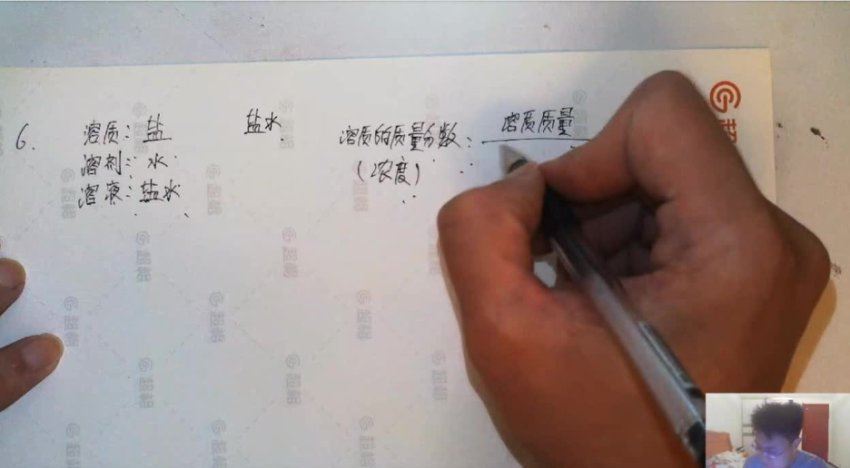 6. 溶质:盐
溶剂:水
溶液:盐水
盐水
溶质的质量分数:溶质质量
(浓度)